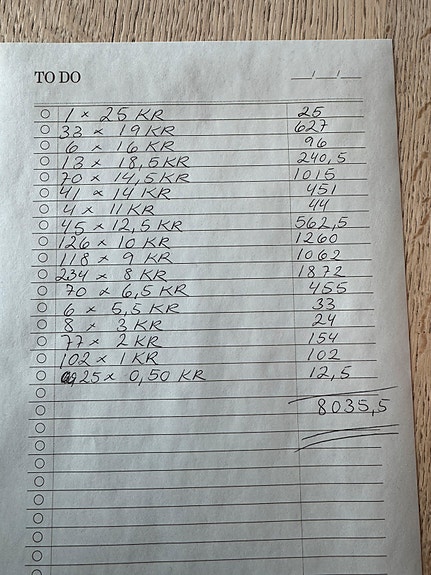 TO DO __/__/__
1 × 25 KR 25
33 × 19 KR 627
6 × 16 KR 96
13 × 18,5 KR 240,5
70 × 14,5 KR 1015
41 × 14 KR 451
4 × 11 KR 44
45 × 12,5 KR 562,5
126 × 10 KR 1260
118 × 9 KR 1062
234 × 8 KR 1872
70 × 6,5 KR 455
6 × 5,5 KR 33
8 × 3 KR 24
77 × 2 KR 154
102 × 1 KR 102
25 × 0,50 KR 12,5
8035,5